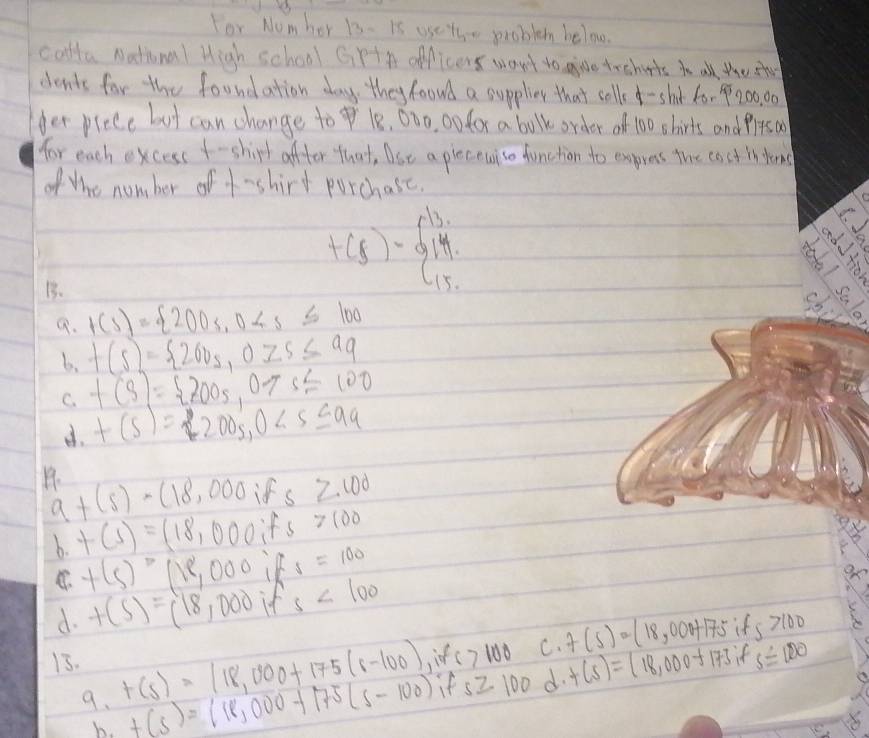 For Number 13-15 use the problem below.
Catta National High School GPTA officers want to give t-shirts to all the stu
dents for the foundation day. they found a supplier that sells t-shit for ₱200.00
per piece but can change to ₱ 18,000.00 for a bulk order of 100 shirts and ₱175.00
for each excess t-shirt after that. Use a piecewise function to express the cost in terms
of the number of t-shirt purchase.
t(s) = {13.
14.
15.
13.
a. t(s) = {200s, 0 < s ≤ 100
b. t(s) = {200s, 0 ≥ s ≤ 99
c. t(s) = {200s, 0 > s ≤ 100
d. t(s) = {200s, 0 < s ≤ 99
14.
a t(s) = (18,000 if s ≥ 100
b. t(s) = (18,000 if s > 100
c. t(s) = (18,000 if s = 100
d. t(s) = (18,000 if s < 100
15.
a. t(s) = (18,000 + 175(s-100), if s > 100 c. t(s) = (18,000+175 if s > 100
b. t(s) = (18,000 + 175(s - 100) if s ≥ 100 d. t(s) = (18,000 + 175 if s ≤ 100
addition
total salar